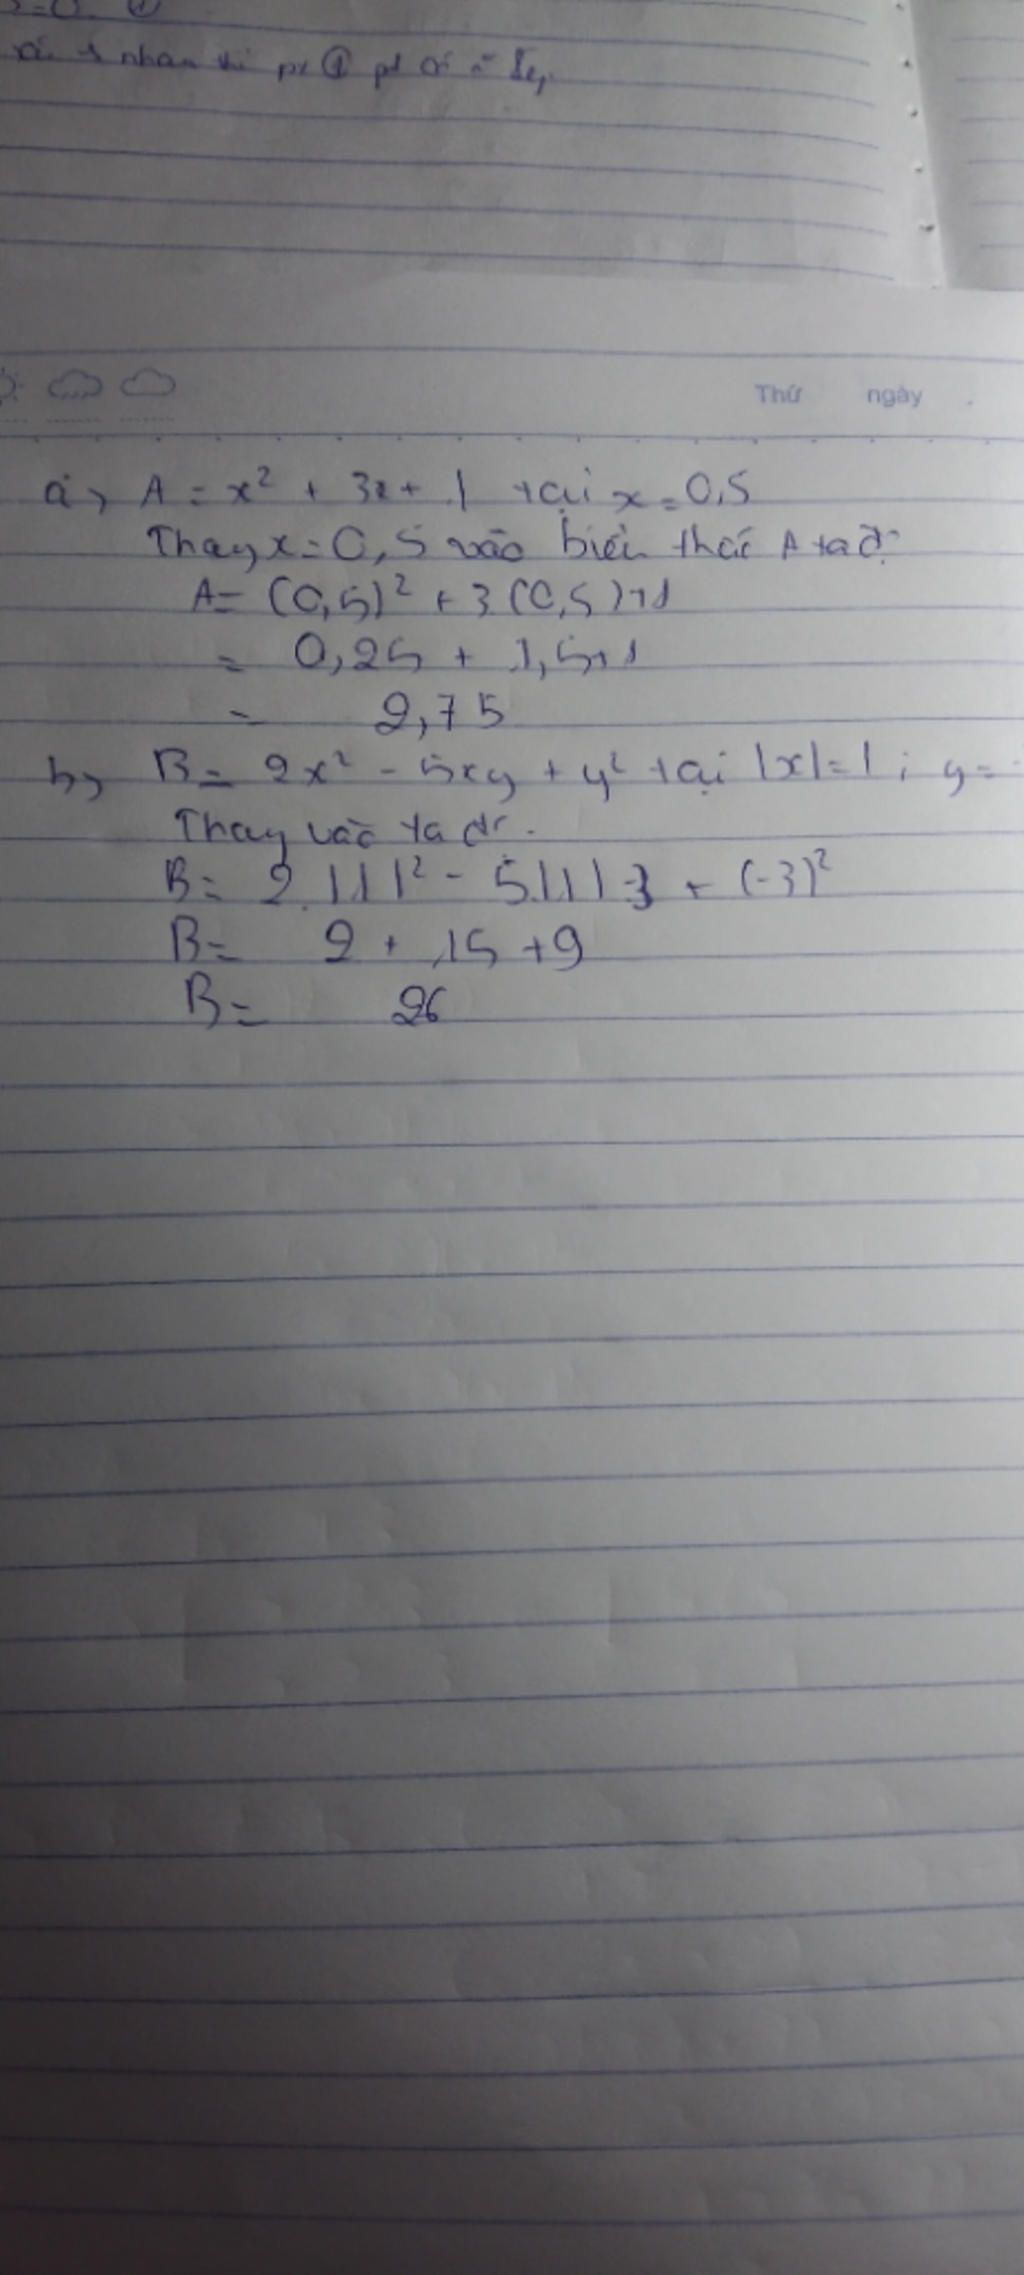 nhan thì pt ① pt có n kép
Thứ ngày
a, A = x² + 3x + 1 tại x = 0,5
Thay x = 0,5 vào biểu thức A ta đc
A = (0,5)² + 3(0,5)+1
= 0,25 + 1,5+1
= 2,75
b, B = 2x² - 5xy + y² tại |x|=1; y =
Thay vào ta đc
B = 2.|1|² - 5.|1|.-3 + (-3)²
B = 2 + 15 + 9
B = 26